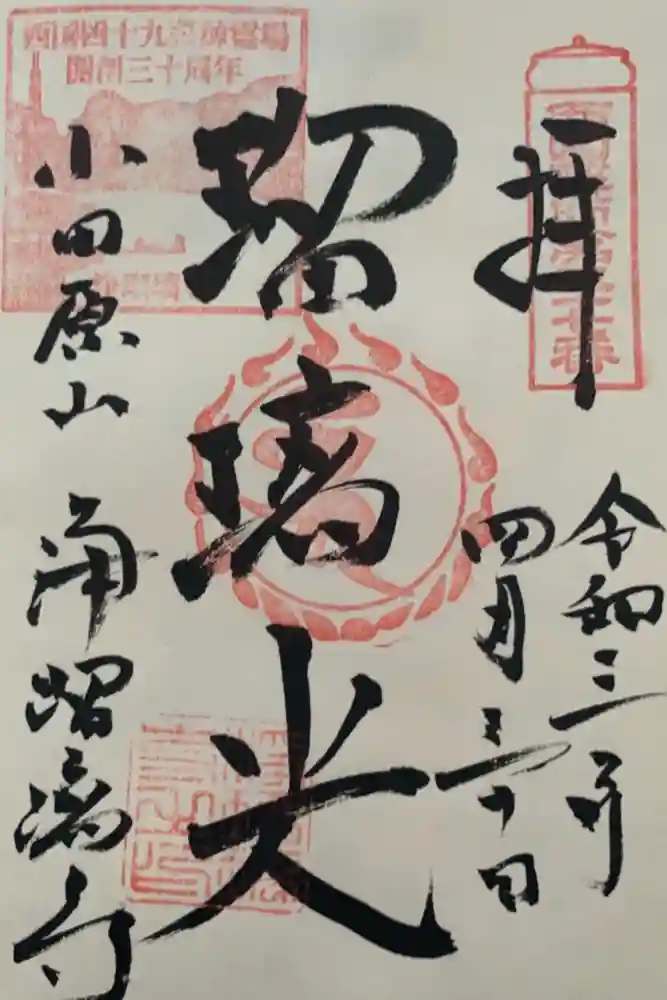 拝
令和三年
四月三十日
瑠璃光
西國四十九薬師霊場
開創三十周年
小田原山
浄瑠璃寺